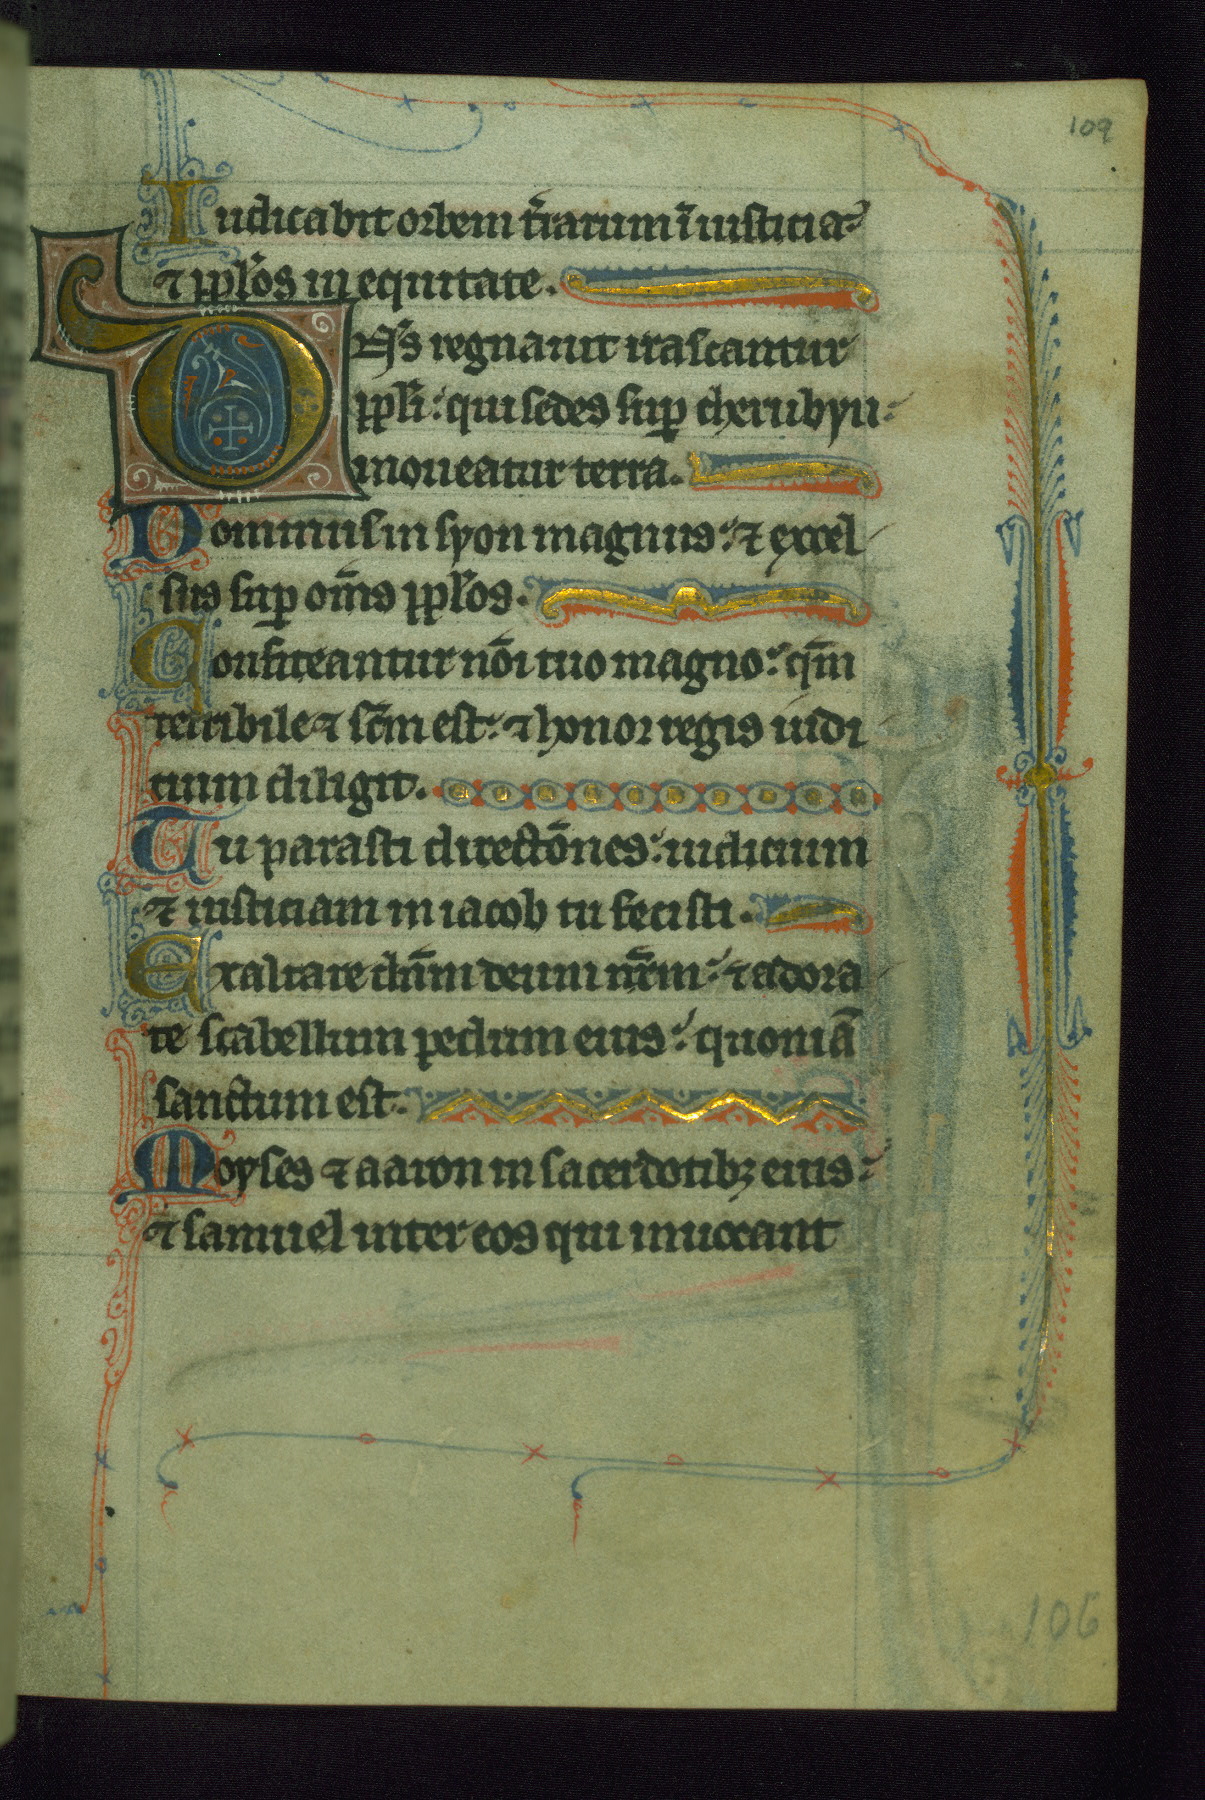 109
Iudicabit orbem t̄rarum ī iusticia:
⁊ pp̄los in equitate.
Dn̄s regnauit irascantur
pp̄li: qui sedes sup̱ cherubyn:
moueatur terra.
Dominus in syon magnus: ⁊ excel
sus sup̱ om̄s pp̄los.
Confiteantur nōi tuo magno: qm̄
terribile ⁊ sc̄m est: ⁊ honor regis iudi
cium diligit.
Tu parasti directōnes: iudicium
⁊ iusticiam in iacob tu fecisti.
Exaltate dn̄m deum nr̄m: ⁊ adora
te scabellum pedum eius: quoniā
sanctum est.
Moyses ⁊ aaron in sacerdotibꝫ eius:
⁊ samuel inter eos qui inuocant
106